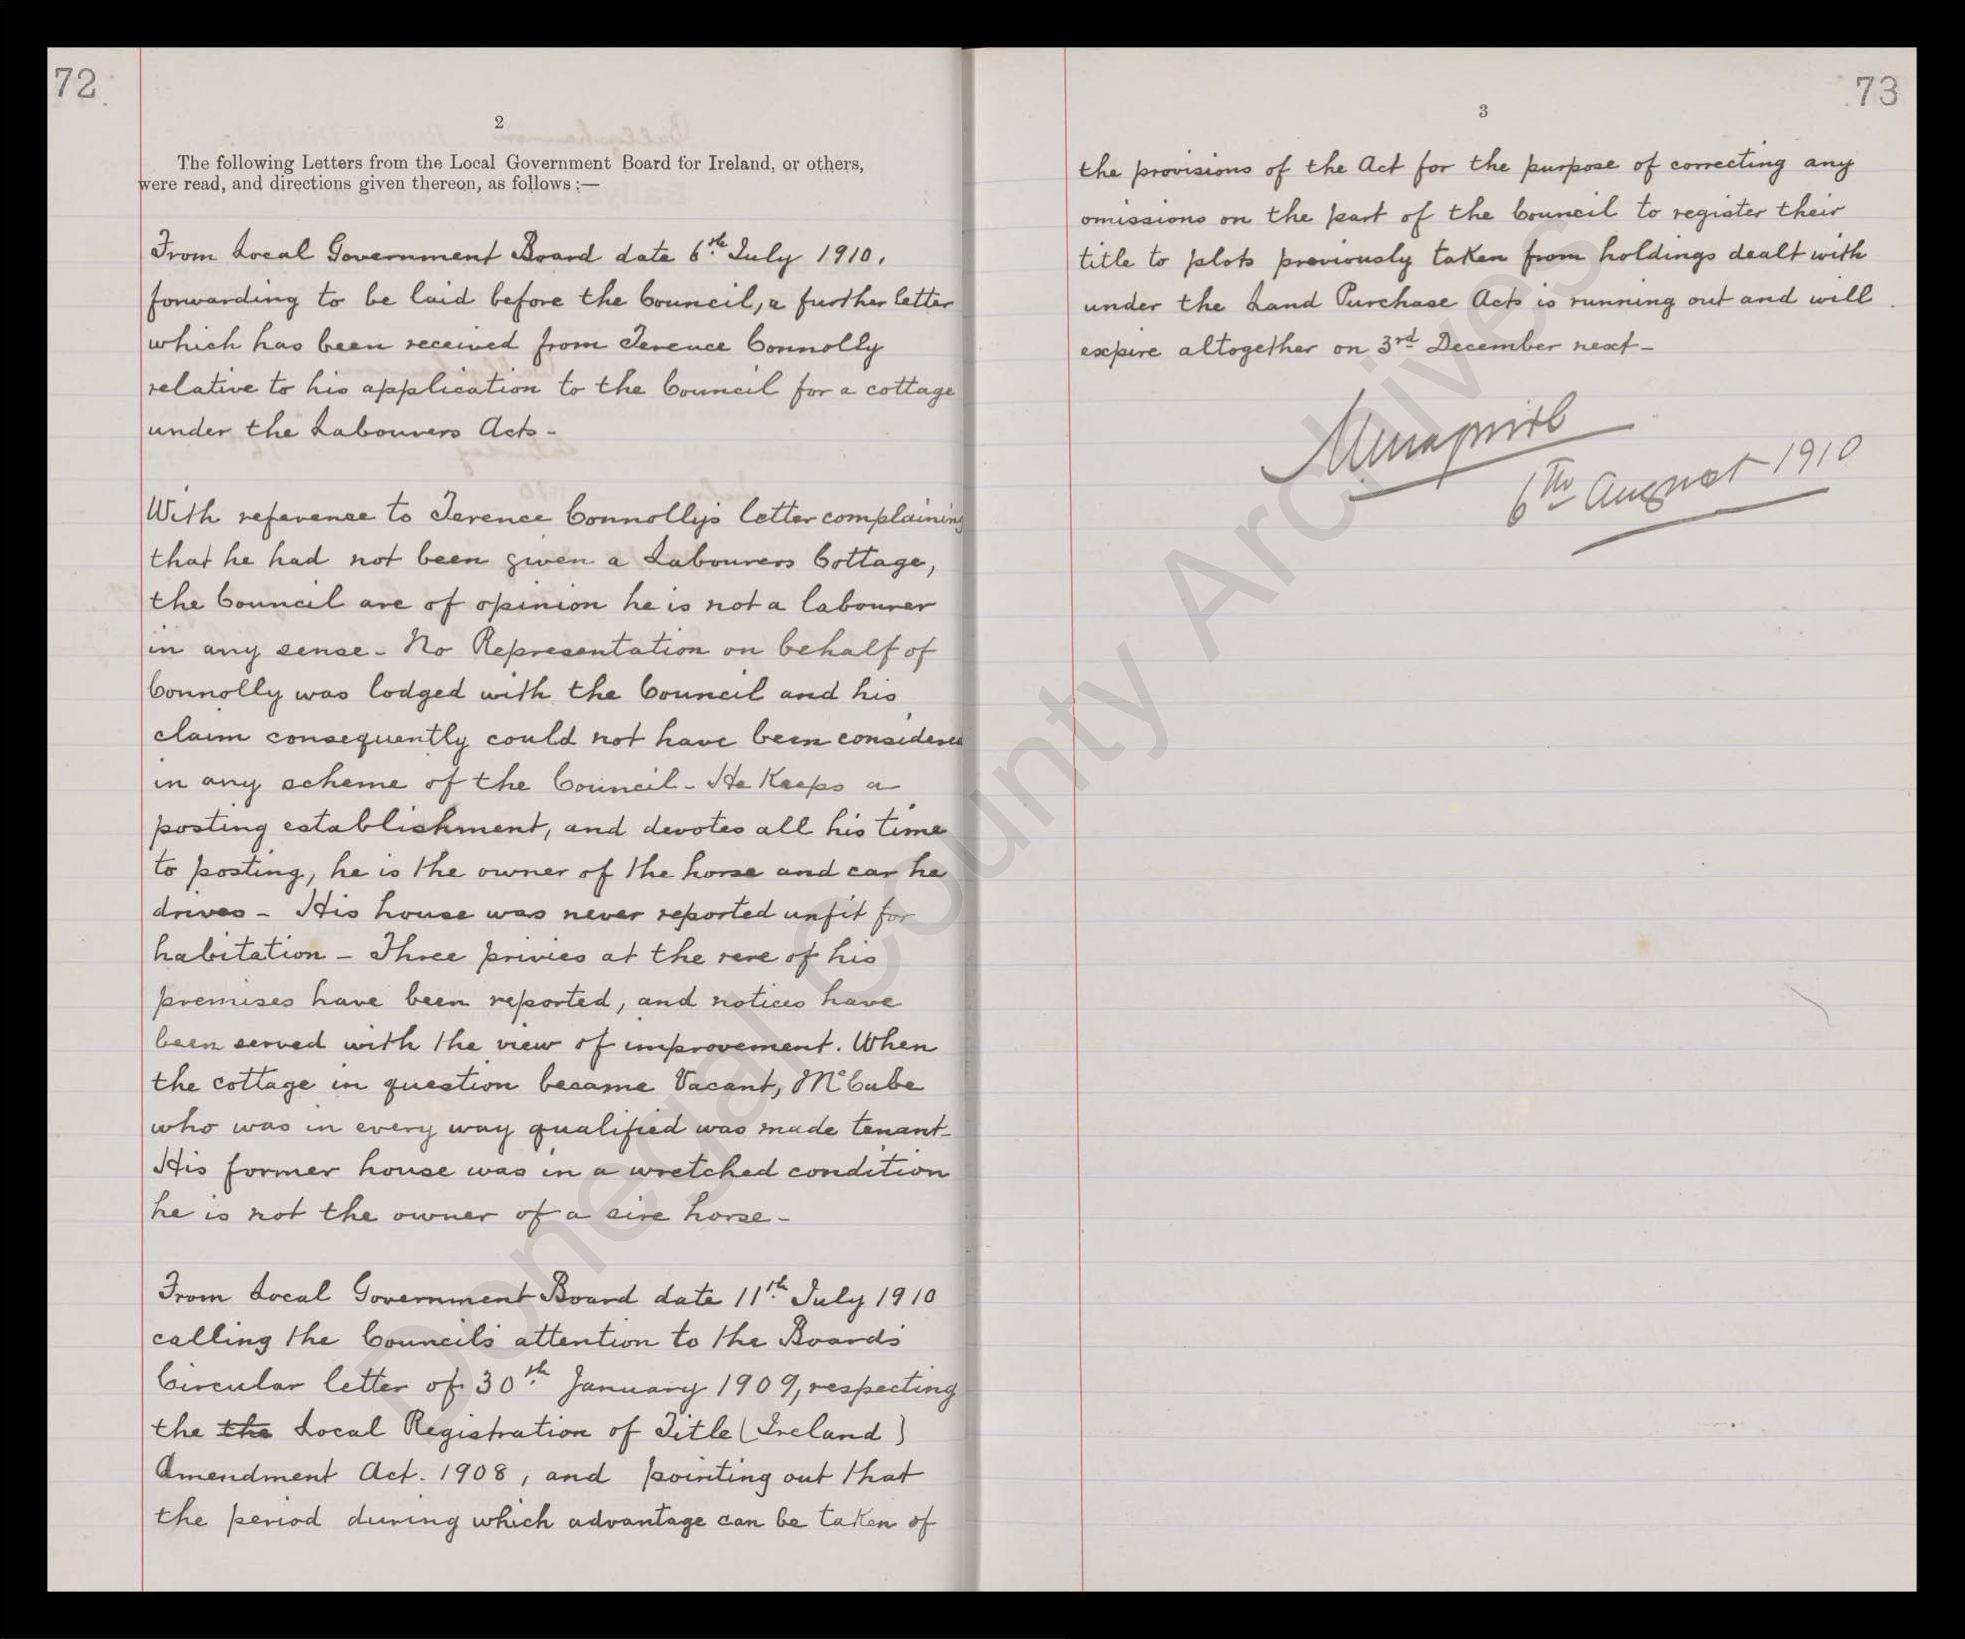 72
2
The following Letters from the Local Government Board for Ireland, or others,
were read, and directions given thereon, as follows :—
From Local Government Board date 6th July 1910.
forwarding to be laid before the Council, a further letter
which has been received from Terence Connolly
relative to his application to the Council for a cottage
under the Labourers Acts -
With reference to Terence Connolly's letter complaining
that he had not been given a Labourers Cottage,
the Council are of opinion he is not a labourer
in any sense - No Representation on behalf of
Connolly was lodged with the Council and his
claim consequently could not have been considered
in any scheme of the Council - He Keeps a
posting establishment, and devotes all his time
to posting, he is the owner of the horse and car he
drives - His house was never reported unfit for
habitation - Three privies at the rere of his
premises have been reported, and notices have
been served with the view of improvement. When
the cottage in question became Vacant, McCabe
who was in every way qualified was made tenant -
His former house was in a wretched condition
he is not the owner of a sire horse -
From Local Government Board date 11th July 1910
calling the Council's attention to the Board's
Circular letter of 30th January 1909, respecting
the the Local Registration of Title (Ireland)
Amendment Act. 1908, and pointing out that
the period during which advantage can be taken of
73
3
the provisions of the Act for the purpose of correcting any
omissions on the part of the Council to register their
title to plots previously taken from holdings dealt with
under the Land Purchase Acts is running out and will
expire altogether on 3rd December next -
6th August 1910
Donegal County Archives